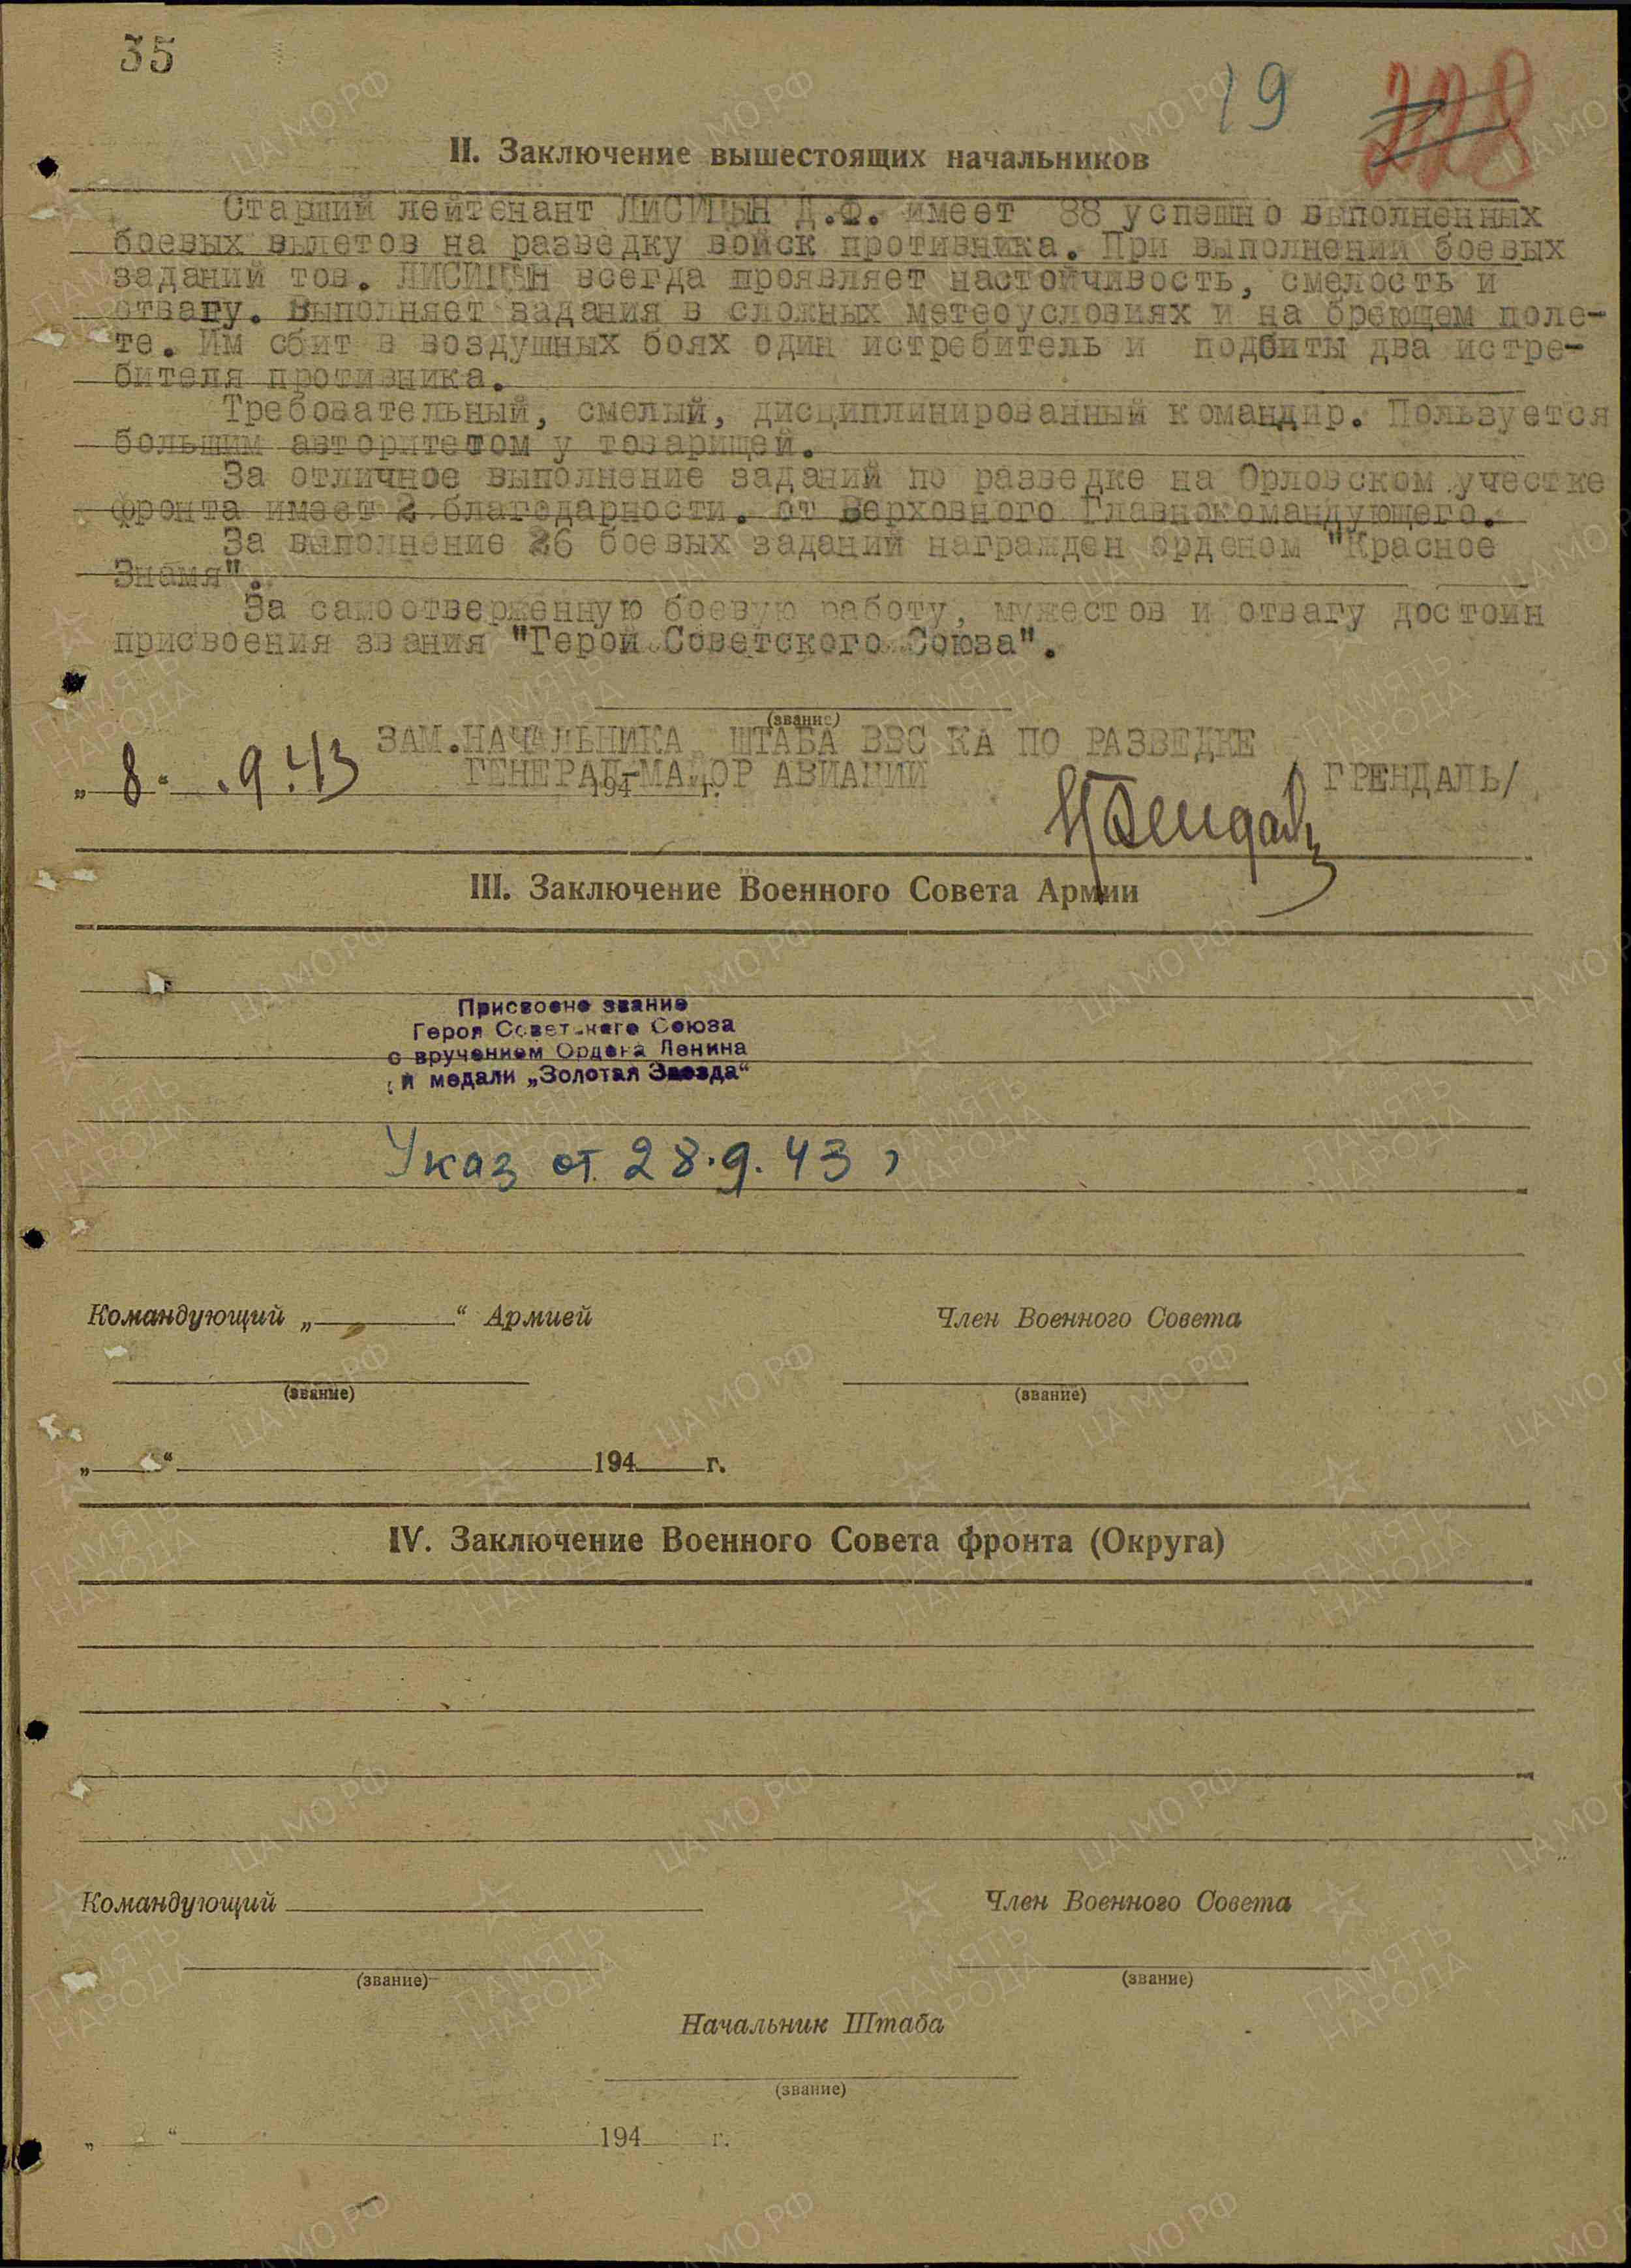 35
19
228
II. Заключение вышестоящих начальников
Старший лейтенант ЛИСИЦЫН Д.Ф. имеет 88 успешно выполненных
боевых вылетов на разведку войск противника. При выполнении боевых
заданий тов. ЛИСИЦЫН всегда проявляет настойчивость, смелость и
отвагу. Выполняет задания в сложных метеоусловиях и на бреющем поле-
те. Им сбит в воздушных боях один истребитель и подбиты два истре-
бителя противника.
Требовательный, смелый, дисциплинированный командир. Пользуется
большим авторитетом у товарищей.
За отличное выполнение заданий по разведке на Орловском участке
фронта имеет 2 благодарности. от Верховного Главнокомандующего.
За выполнение 26 боевых заданий награжден орденом "Красное
Знамя".
За самоотверженную боевую работу, мужестов и отвагу достоин
присвоения звания "Герой Советского Союза".
(звание)
ЗАМ.НАЧАЛЬНИКА ШТАБА ВВС КА ПО РАЗВЕДКЕ
ГЕНЕРАЛ-МАЙОР АВИАЦИИ ГРЕНДАЛЬ/
„8“ .9.43 194 г.
III. Заключение Военного Совета Армии
Присвоено звание
Героя Советского Союза
с вручением Ордена Ленина
и медали „Золотая Звезда“
Указ от 28.9.43 г
Командующий „ “ Армией Член Военного Совета
(звание) (звание)
„ “ 194 г.
IV. Заключение Военного Совета фронта (Округа)
Командующий Член Военного Совета
(звание) (звание)
Начальник Штаба
(звание)
„ “ 194 г.
ЦА МО РФ
ПАМЯТЬ НАРОДА